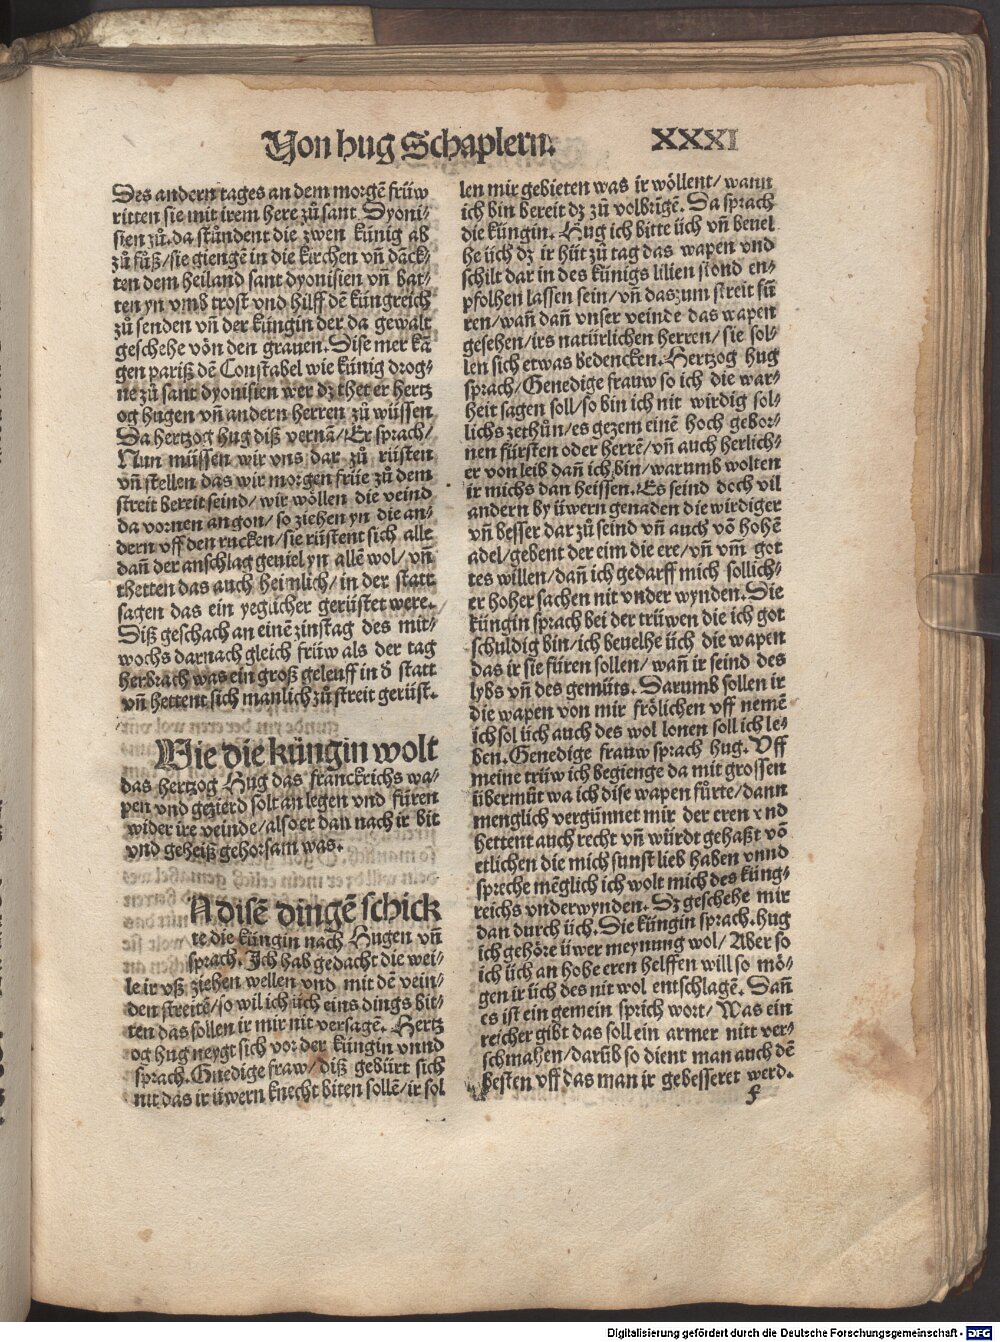 Von hug Schaplern. XXXI
Des andern tages an dem morgē früw
ritten sie mit irem here zů sant Dyoni⸗
sien zů. da stůndent die zwen künig ab
zů fůß/sie giengē in die kirchen vñ dāck⸗
ten dem heiland sant dyonisien vñ bat⸗
ten yn vmb trost vnd hilff dē küngreich
zů senden vñ der küngin der da gewalt
geschehe von den grauen. Dise mer kā
gen pariß dē Constabel wie künig drog⸗
ne zů sant dyonisien wer dz thet er hertz
og hugen vñ andern herren zů wüssen
Da hertzog hug diß vernā/Er sprach/
Nun müssen wir vns dar zů rüsten
vñ stellen das wir morgen früe zů dem
streit bereit seind/wir wöllen die veind
da vornen an gon/so ziehen yn die an⸗
dern vff den rucken/sie rüstent sich alle
dañ der anschlag geuiel yn allē wol/vñ
thetten das auch heimlich/in der statt
sagen das ein yeglicher gerüstet were.
Diß geschach an einē zinstag des mit⸗
wochs darnach gleich früw als der tag
herbrach was ein groß geleuff in d̄ statt
vñ hettent sich manlich zů streit gerüst.
Wie die küngin wolt
das hertzog Hug das franckrichs wa⸗
pen vnd gezierd solt an legen vnd füren
wider ire veinde/also er dan nach ir bit
vnd geheiß gehorsam was.
N disē dingē schick
te die küngin nach Hugen vñ
sprach. Ich hab gedacht die wei⸗
le ir vß ziehen wellen vnd mit dē vein⸗
den streitē/so wil ich üch eins dings bit⸗
ten das sollen ir mir nit versagē. Hertz
og hug neygt sich vor der küngin vnnd
sprach. Gnedige fraw/diß gebürt sich
nit das ir üwern knecht biten sollē/ir sol
len mir gebieten was ir wöllent/wann
ich bin bereit dz zů volbrīgē. Da sprach
die küngin. Hug ich bitte üch vñ beuel
he üch dz ir hüt zů tag das wapen vnd
schilt dar in des künigs lilien stond en⸗
pfolhen lassen sein/vñ das zum streit fü
ren/wañ dañ vnser veinde das wapen
gesehen/irs natürlichen herren/sie sol⸗
len sich etwas bedencken. Hertzog hug
sprach/Genedige frauw so ich die war⸗
heit sagen soll/so bin ich nit wirdig sol⸗
lichs zethůn/es gezem einē hoch gebor⸗
nen fürsten oder herrē/vñ auch herlich⸗
er von leib dañ ich bin/warumb wolten
ir michs dan heissen. Es seind doch vil
andern by üwern genaden die wirdiger
vñ besser dar zů seind vñ auch vō hohē
adel/gebent der eim die ere/vñ vm̄ got
tes willen/dañ ich gedarff mich sollich⸗
er hoher sachen nit vnder wynden. Die
küngin sprach bei der trüwen die ich got
schuldig bin/ich beuelhe üch die wapen
das ir sie füren sollen/wañ ir seind des
lybs vñ des gemüts. Darumb sollen ir
die wapen von mir frölichen vff nemē
ich sol üch auch des wol lonen soll ich le⸗
ben. Genedige frauw sprach hug. Vff
meine trüw ich begienge da mit grossen
übermůt wa ich dise wapen fůrte/dann
menglich vergünnet mir der eren vnd
hettent auch recht vñ würdt gehaßt vō
etlichen die mich sunst lieb haben vnnd
spreche mēglich ich wolt mich des küng⸗
reichs vnderwynden. Dz geschehe mir
dan durch üch. Die küngin sprach. hug
ich gehöre üwer meynung wol/Aber so
ich üch an hohe eren helffen will so mö⸗
gen ir üch des nit wol entschlagē. Dañ
es ist ein gemein sprich wort/Was ein
reicher gibt das soll ein armer nitt ver⸗
schmahen/darüb so dient man auch dē
besten vff das man ir gebesseret werd.
f
Digitalisierung gefördert durch die Deutsche Forschungsgemeinschaft - DFG